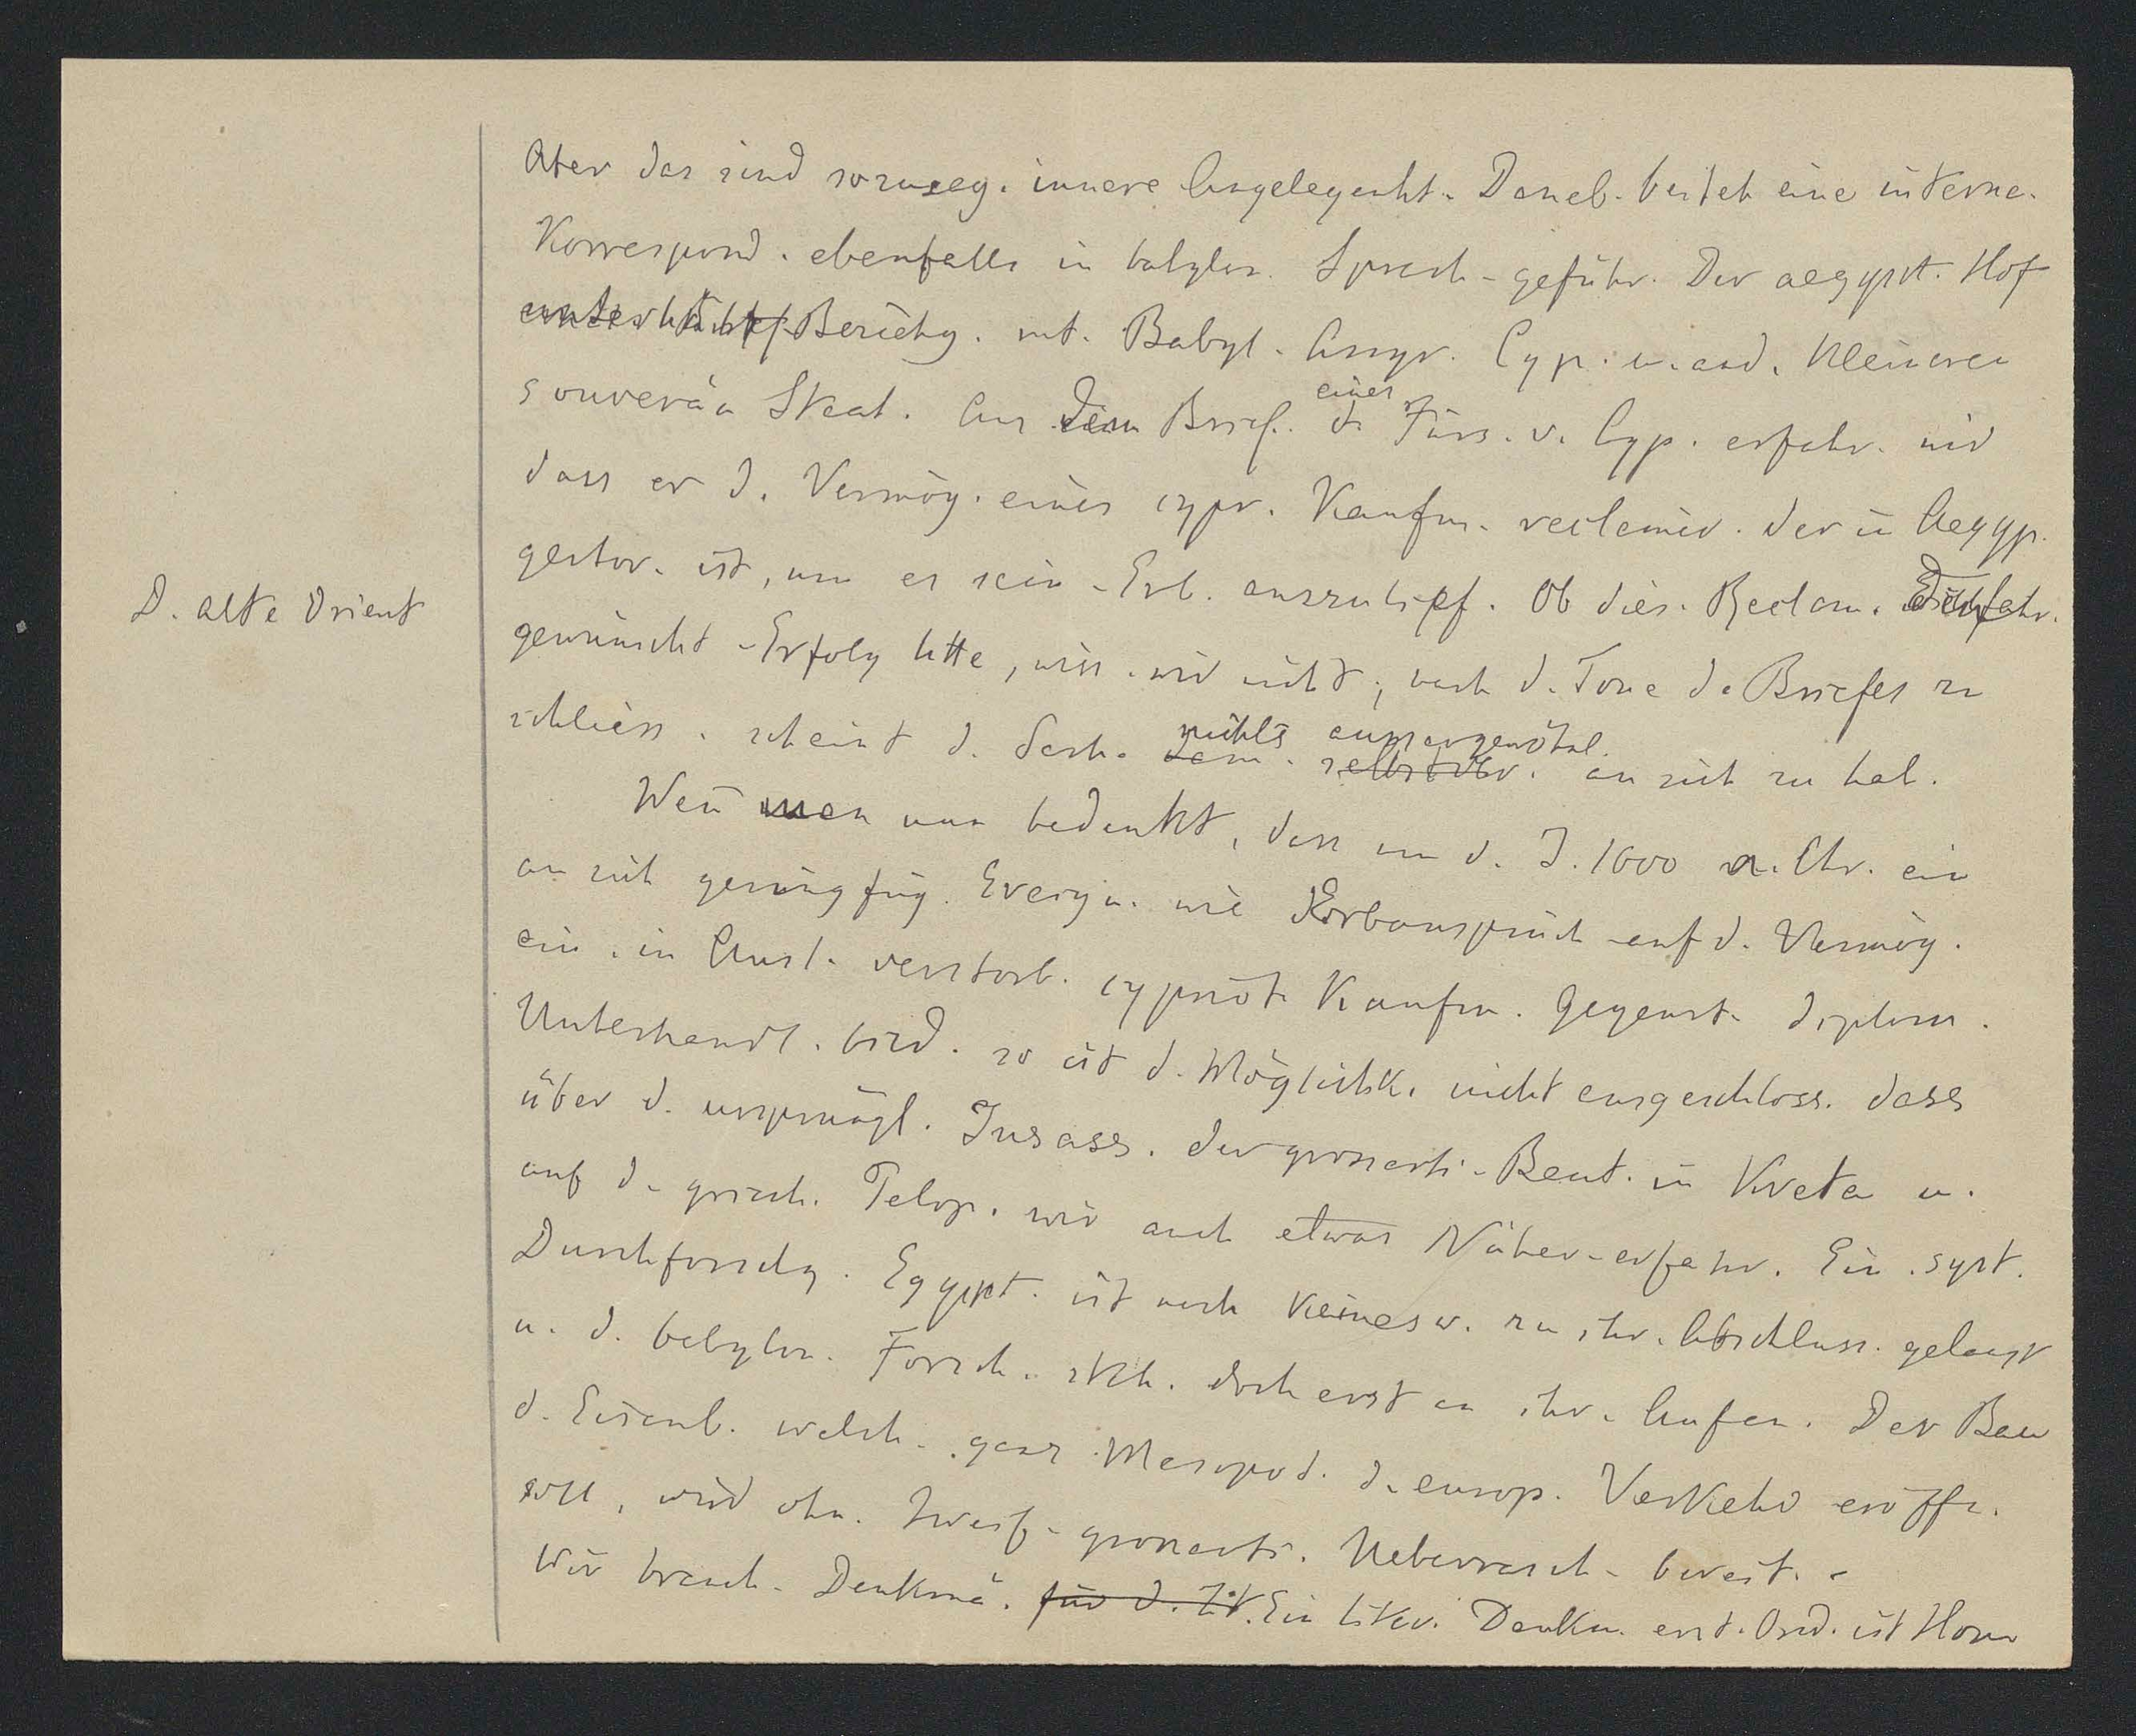 Aber das sind sozuseg. innere Angelegenht. Daneb. besteh eine interne.
Korrespond. ebenfalls in babylon. Sprach. geführ. Der aegypt. Hof
unterhält Beziehg. mt. Babyl. Assyr. Cyp. u. and. kleineren
souverän Staat. Aus dem Brief. eines d. Fürs. v. Cyp. erfahr. wir
dass er d. Vermög. eines cypr. Kaufm. reclamir. der in Aegyp.
D. alte Orient
gestor. ist, um es sein. Erb. auszulief. Ob dies. Reclam.
gewünscht. Erfolg htte, wiss. wir nicht; nach d. Tone d. Briefes zu
schliess. scheint d. Sach. nichts aussergewöhnl. an sich zu hab.
Wen̄ man nun bedenkt, dass um d. J. 1600 v. Chr. ein
an sich geringfüg. Ereign. wie Erbanspruch auf d. Vermög.
ein. in Ausl. verstorb. cypriot. Kaufm. Gegenst. diplom.
Unterhandl. bild. so ist d. Möglichk. nicht ausgeschloss. dass
über d. ursprüngl. Insass. der grossarti. Baut. in Kreta u.
auf d. griech. Pelop. wir auch etwas Näher. erfahr. Ein. syst.
Durchforschg. Egypt. ist noch keinesw. zu ihr. Abschluss. gelangt
u. d. babylon. Forsch. steh. doch erst an ihr. Anfan. Der Bau
d. Eisenb. welch. ganz Mesopot. d. europ. Verkehr eröffn.
soll, wird ohn. Zweif. grossarti. Ueberrasch. bereit. -
Wir brauch. Denkmä. für d. Zt. Ein liter. Denkm. erst. Ord. ist Hom